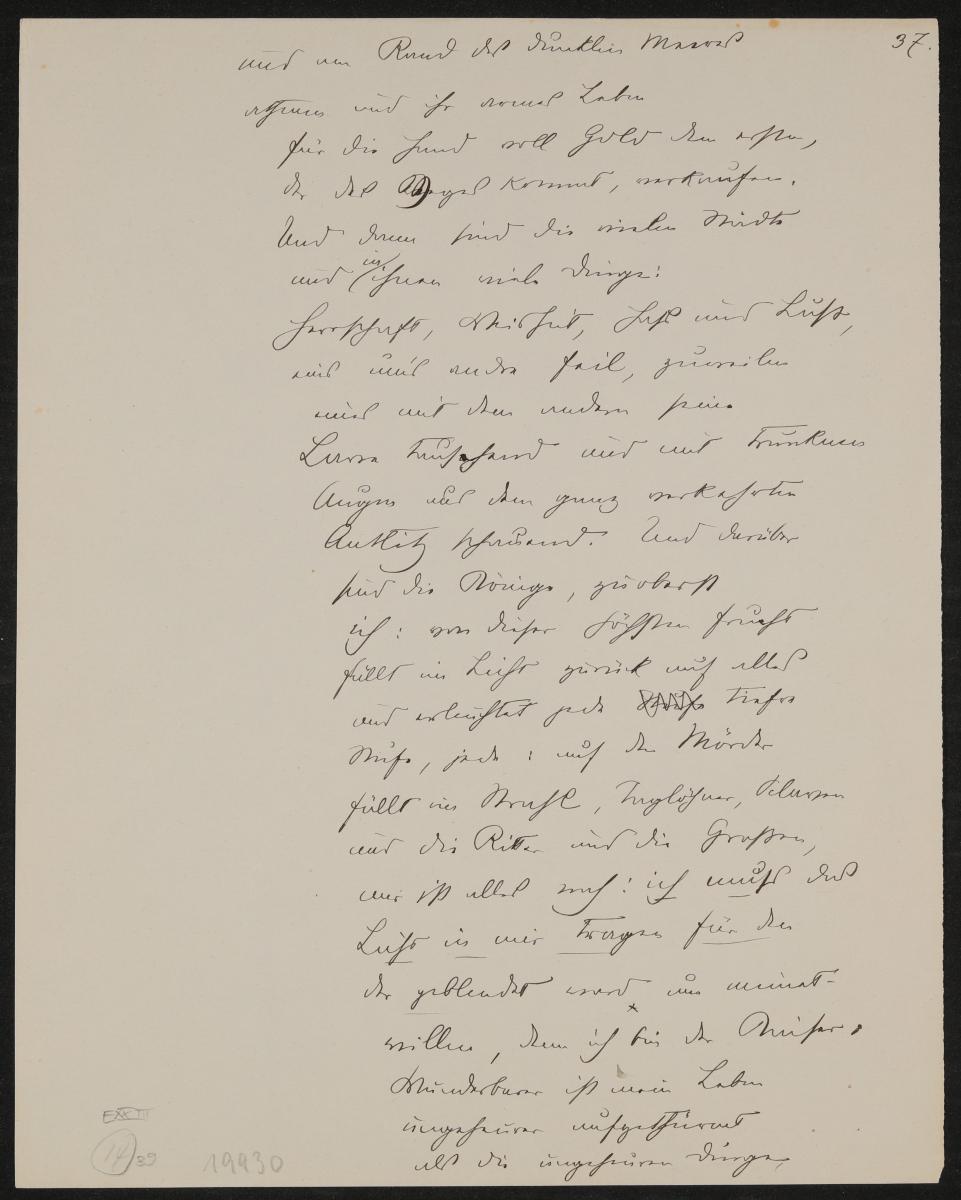 37.
und am Rand des dunklen Meeres
athmen und ihr armes Leben
für die Hand voll Gold dem ersten,
der des Weges kommt, verkaufen.
Und dann sind die vielen Städte
und in ihnen viele Dinge:
Herrschaft, Weisheit, Hass und Lust,
eins ums andre feil, zuweilen
eins mit dem andern seine
Larve tauschend und mit trunknen
Augen aus dem ganz verkehrten
Antlitz schauend. Und darüber
sind die Könige, zuoberst
ich: von dieser höchsten Frucht
fällt ein Licht zurück auf alles
und erleuchtet jede tiefre
Stufe, jede: auf den Mörder
fällt ein Strahl, Taglöhner, Sclaven
und die Ritter und die Großen,
mir ist alles nah: ich muss das
Licht in mir tragen für den
der geblendet ward um meinet-
willen, denn ich bin der Kaiser.
Wunderbarer ist mein Leben
ungeheurer aufgethürmt
als die ungeheuren Dinge,
EXXIII
14 39
19930